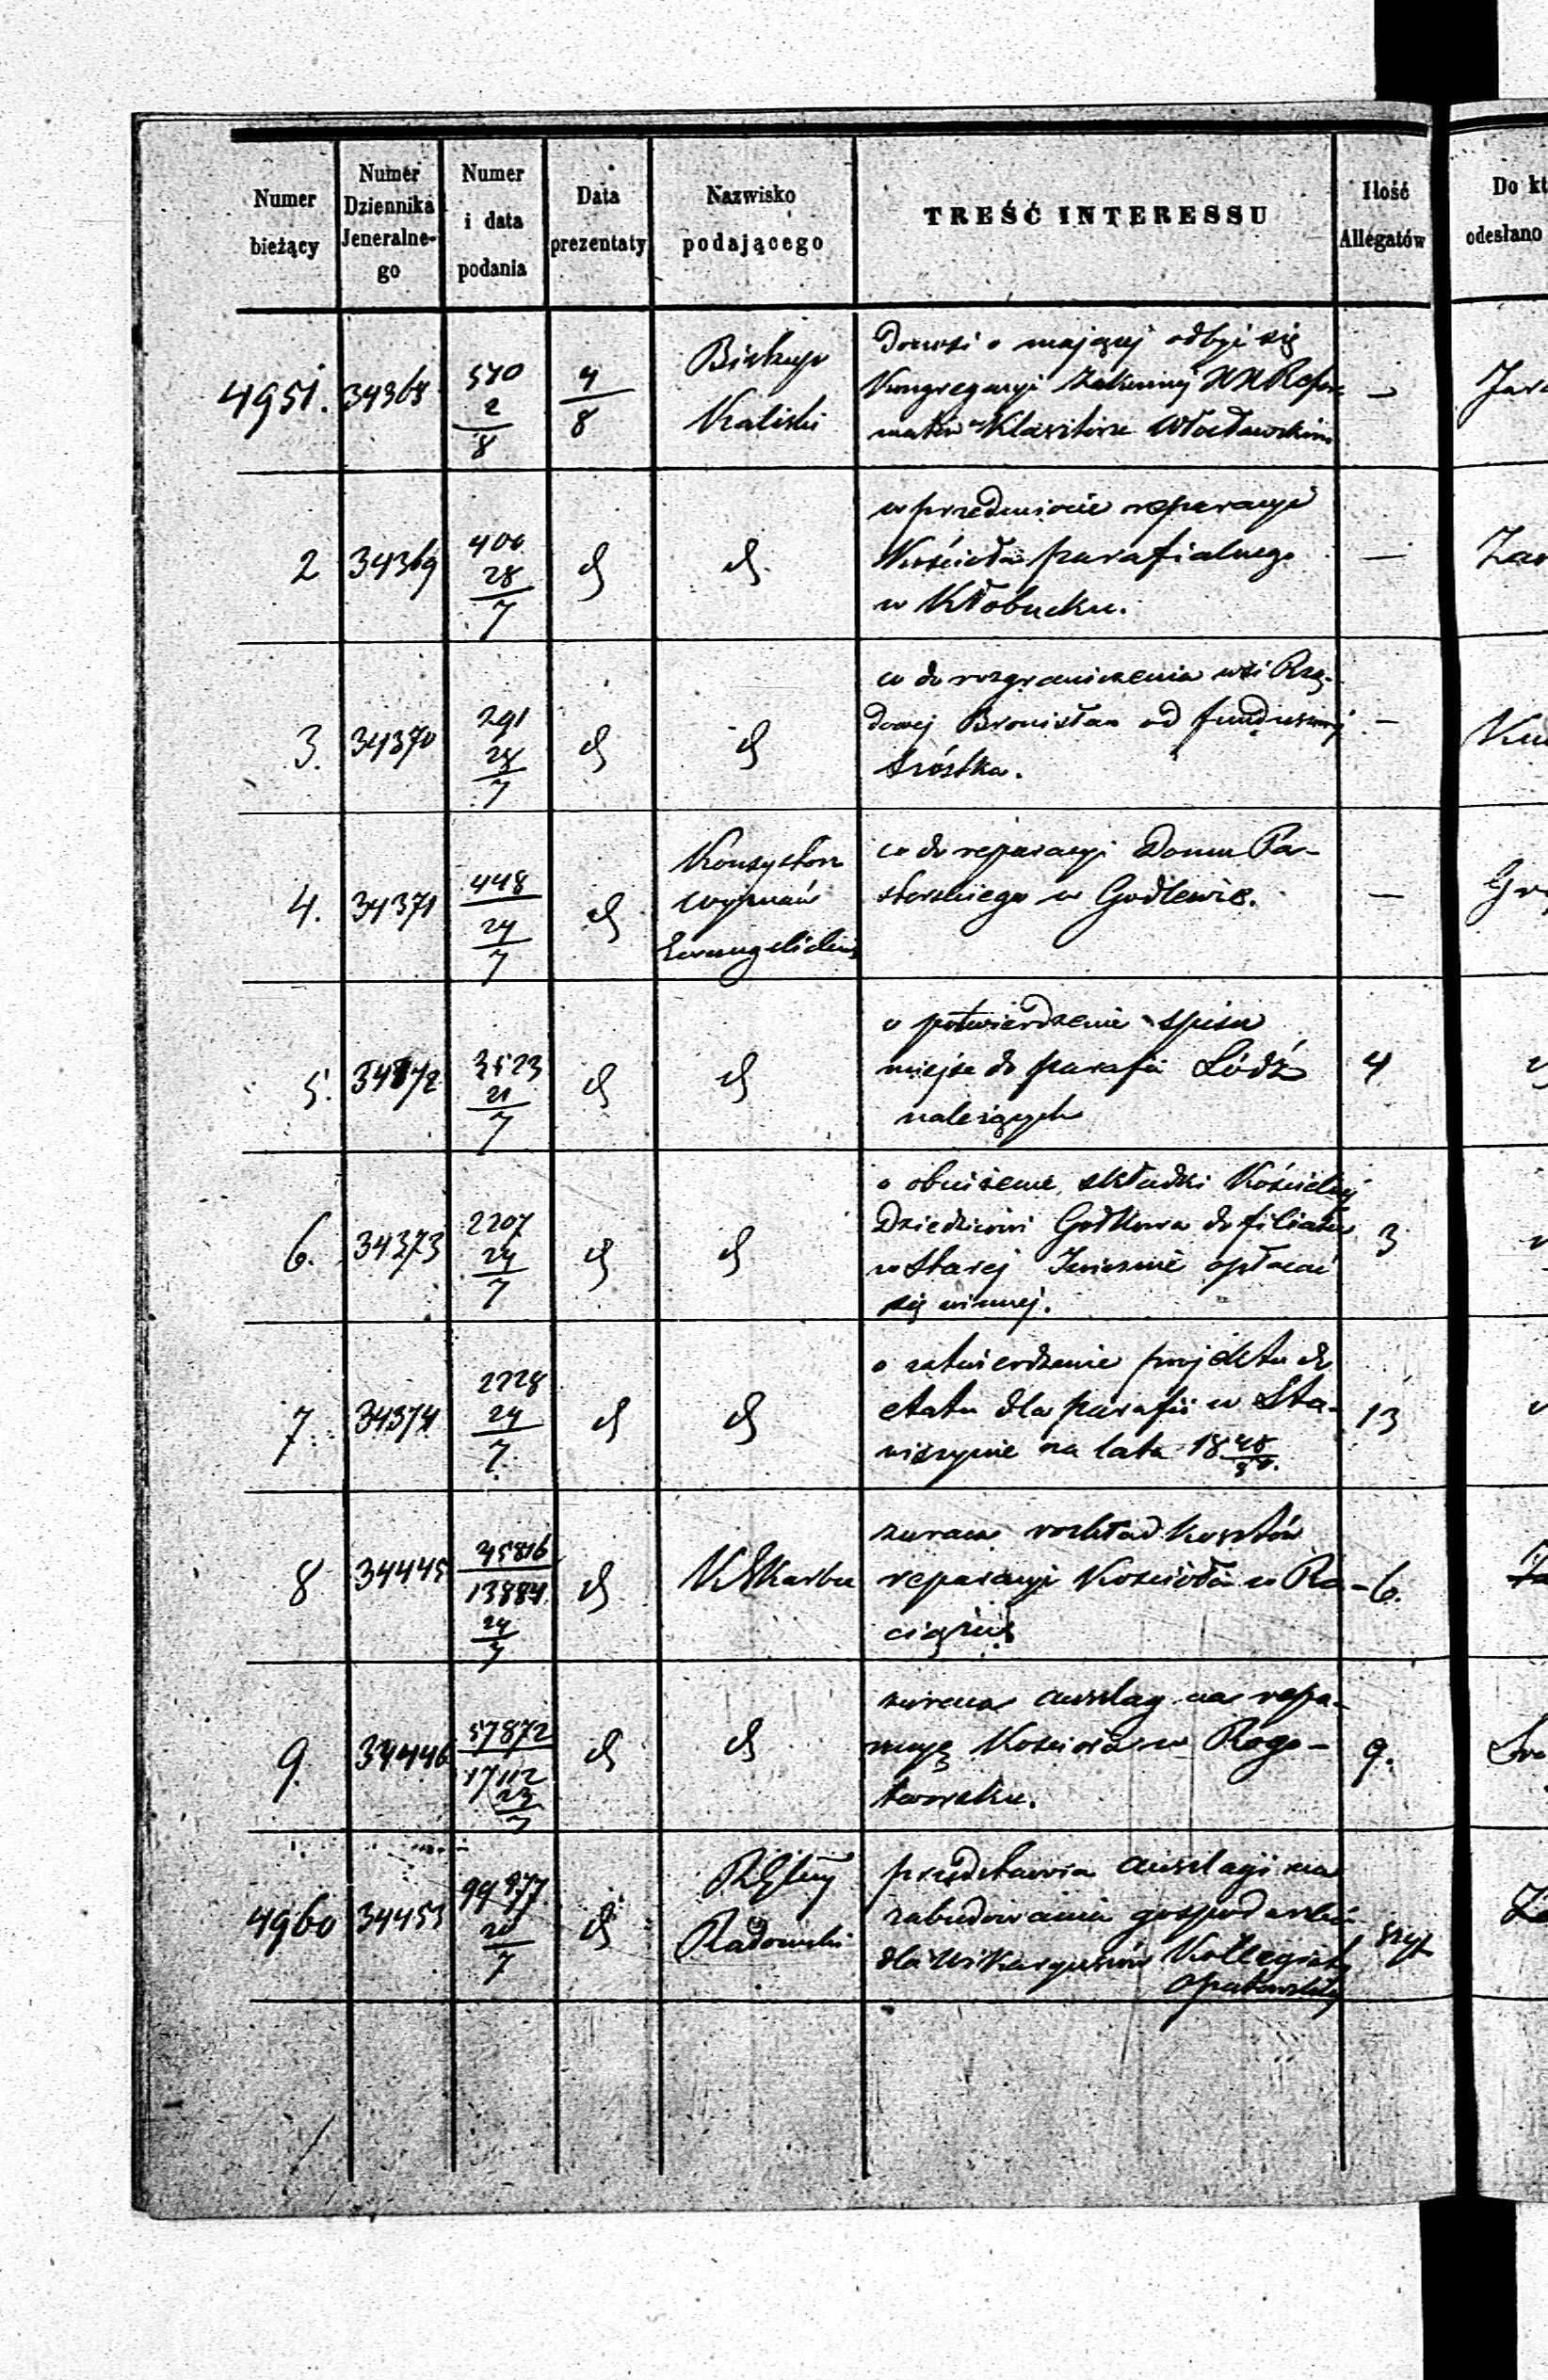 Numer bieżący
Numer Dziennika Jeneralne-go
Numer i data podania
Data prezentaty
Nazwisko podającego
TREŚĆ INTERESSU
Ilość Allegatów
Do kt
odesłano
4951. 34368 540 2/8 4/8
Biskup
Kaliski
Donosi o mającej odbyć się
Kongregacyi Zakonnej XX Refor-
matów w Klasztorze Włocławskim
—
2 34369 400 28/7 d d
w przedmiocie reperacyi
Kościoła parafialnego
w Kłobucku.
—
3. 34370 291 28/7 d d
co do rozgraniczenia wsi Rzą-
dowej Bronisław od funduszowej
Szóstka.
—
4. 34371 448 24/7 d
Konsystorz
wyznań
Ewangelickich
co do reparacyi Domu Pa-
storskiego w Godlewie.
—
5. 34372 3523 21/7 d d
o potwierdzenie spisu
miejsc do parafii Łódź
należących
4
6. 34373 2207 24/7 d d
o obniżenie składki Kościelnej
Dziedzicowi Godkowa do filiału
w Starej Iwicznie opłacać
się winnej.
3
7. 34374 2228 24/7 d d
o zatwierdzenie projektu do
etatu dla parafii w Sta-
wiszynie na lata 1848/50.
13
8 34445 45816 13884 24/7 d
KSkarbu
zwraca rozkład kosztów
reparacyi Kościoła w Ra-
ciążu
6.
9. 34446 57872 17112 23/7 d d
zwraca anszlag na repa-
racyę Kościoła w Rogo-
tworsku.
9.
4960 34453 99877 20/7 d
RGbny
Radomski
przedstawia anszlagi na
zabudowania gospodarskie
dla wikaryuszów Kollegiaty
Opatowskiej
szyt